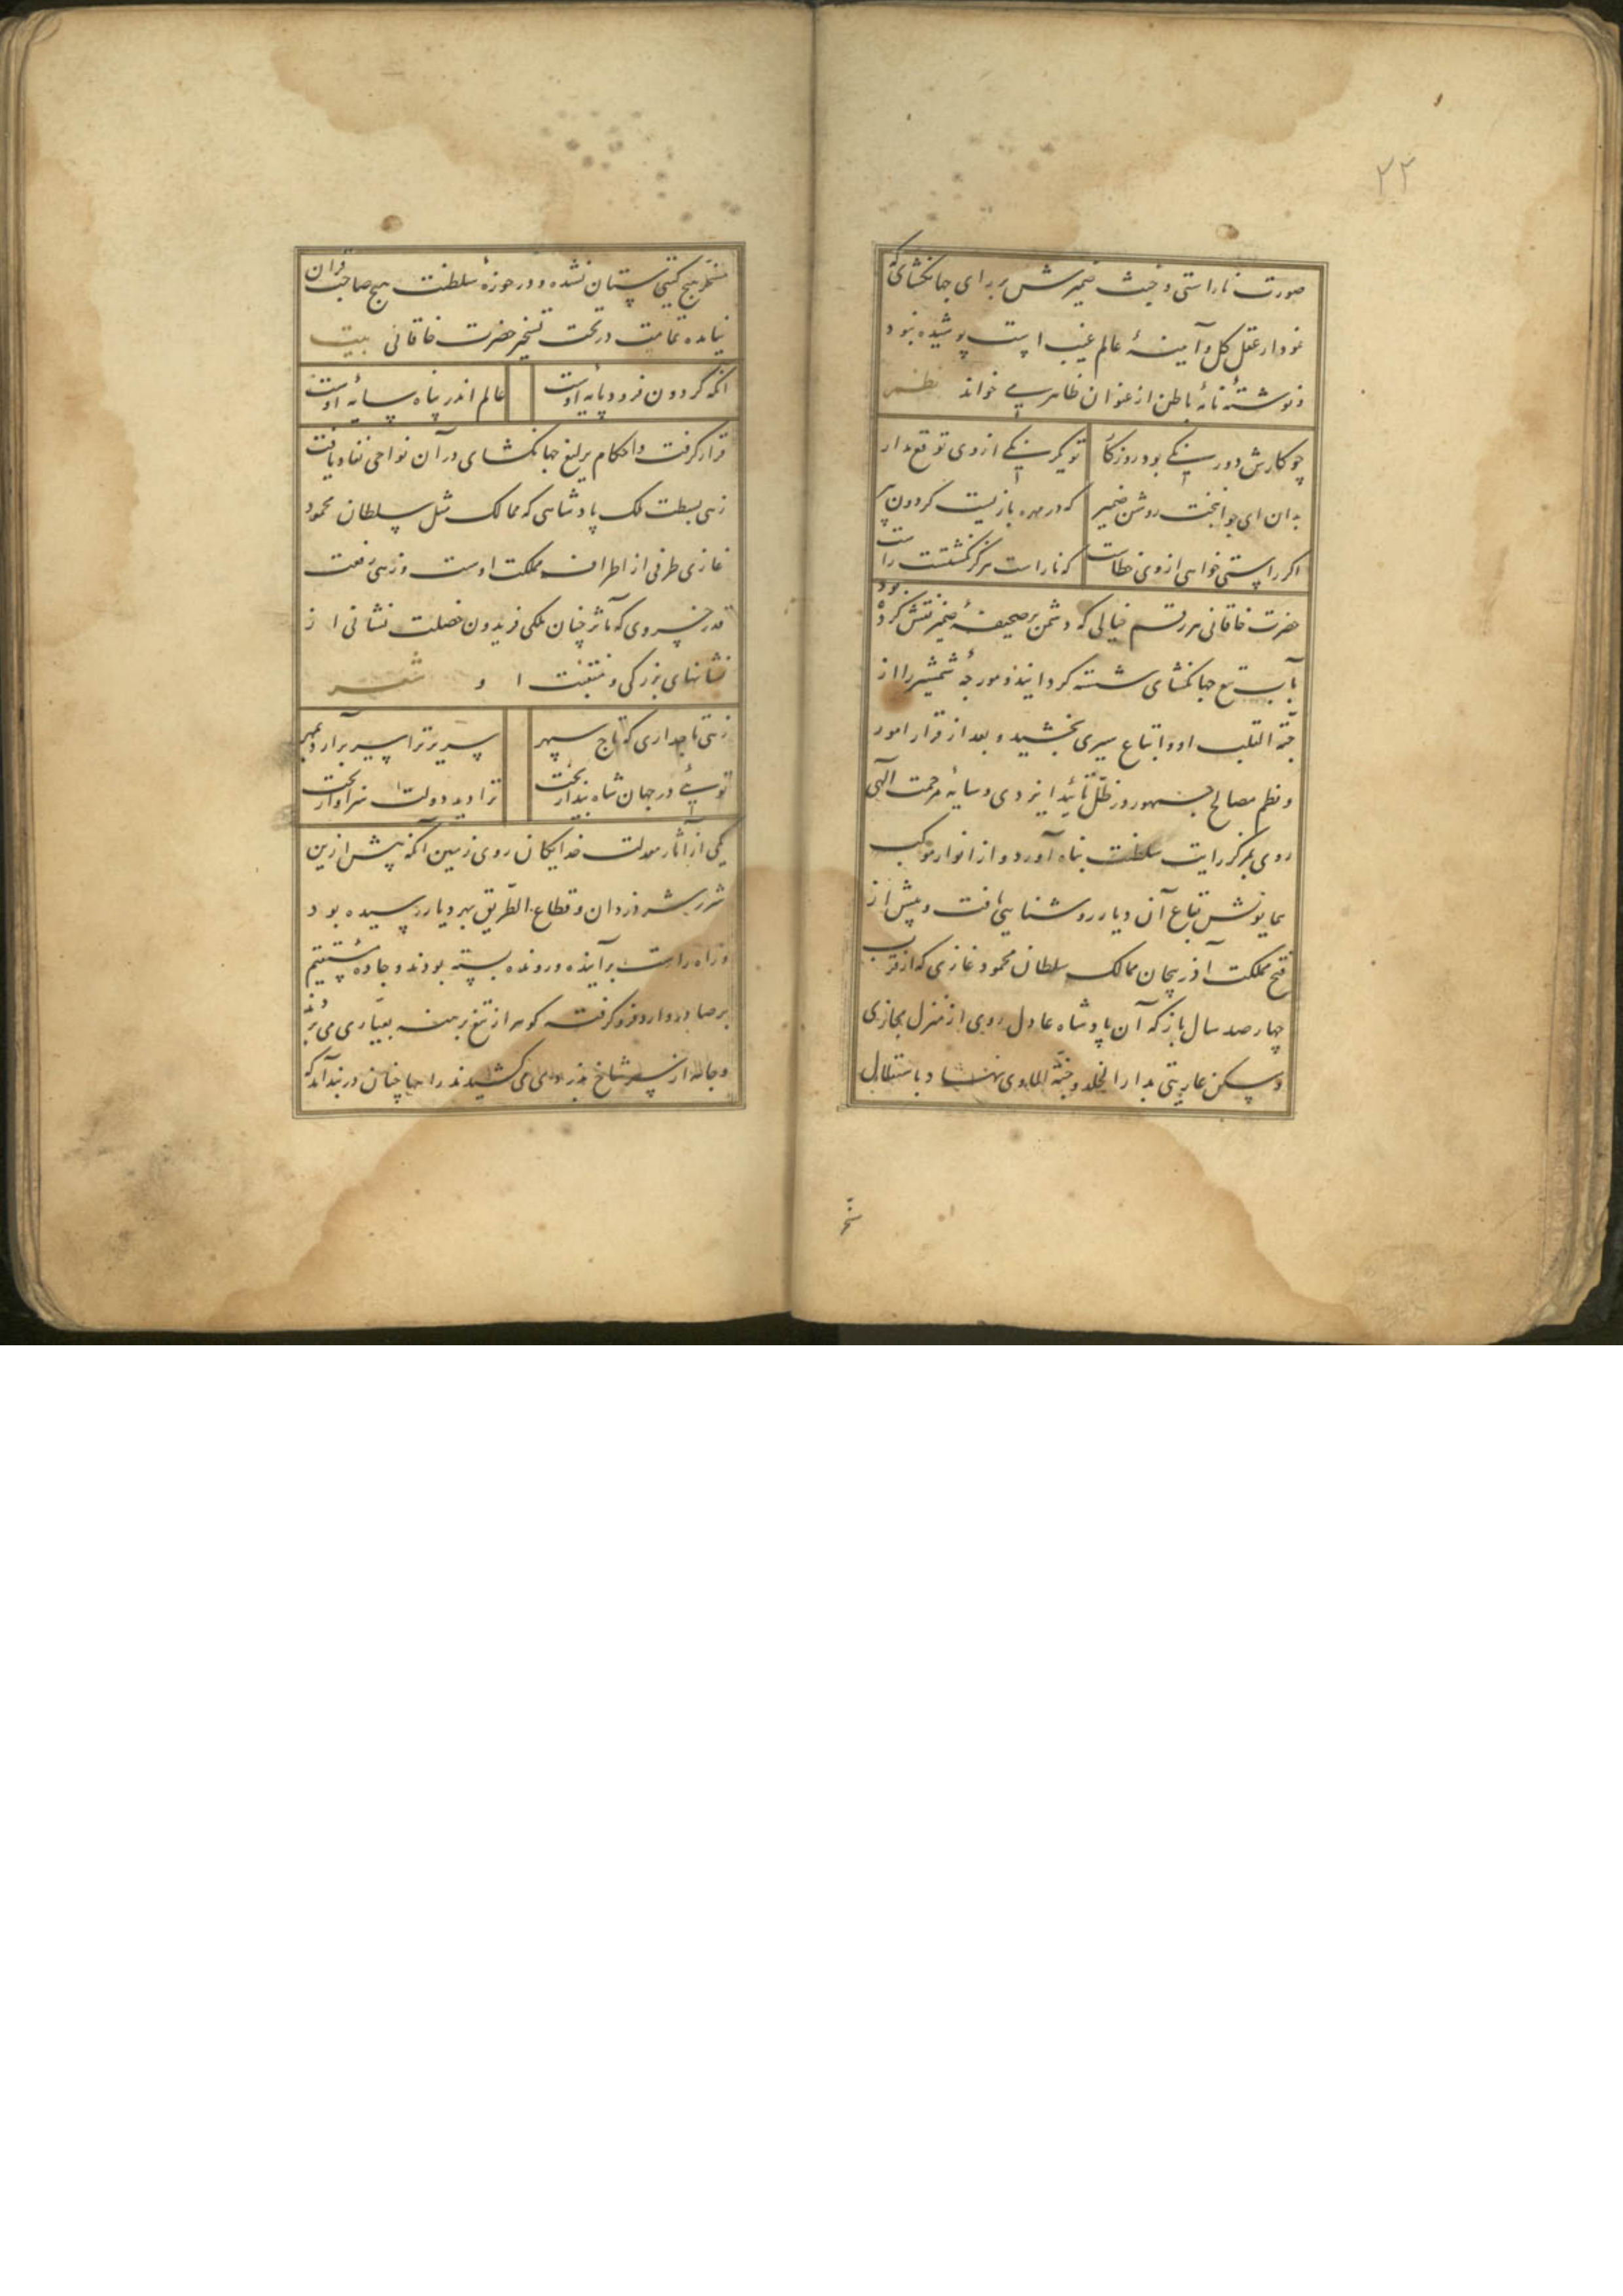 ۲۲
صورت ناراستی و خبث ضمیرش بر رای جهانگشای که
نمودار عقل کل و آیینهٔ عالم غیب است پوشیده نبود
و نوشتهٔ نامهٔ باطن از عنوان ظاهر می خواند نظم
چو کارش دور نیکی بود روزگار تو دیگر نیکی از وی توقع مدار
بدان ای جوانبخت روشن ضمیر که در مهره بازیست گردون پیر
اگر راستی خواهی از وی خطاست که ناراست هرگز نگشتست راست
حضرت خاقانی هر رقم خیالی که دشمن بر صحیفهٔ ضمیر نقش کرده بود
بآب تیغ جهانگشای شسته گردانید و مورچهٔ شمشیر را از
حبّة القلب او و اتباع سیری بخشید و بعد از قرار امور
و نظم مصالح جمهور در ظلّ تأئید ایزدی و سایهٔ مرحمت الهی
روی بمرکز رایت سلطنت پناه آورد و از انوار موکب
همایونش بقاع آن دیار روشنایی یافت و پیش از
فتح مملکت آذربیجان ممالک سلطان محمود غازی که از قرب
چهار صد سال باز که آن پادشاه عادل روی از منزل مجازی
و مسکن عاریتی بدار الخلد و جنّة الماوی نهاد و باستقلال
مسخّر
مسخّر هیچ گیتی ستان نشده و در حوزهٔ سلطنت هیچ صاحب قران
نیامده تمامت در تحت تسخیر حضرت خاقانی بیت
آنکه گردون فرود پایهٔ اوست عالم اندر پناه سایهٔ اوست
قرار گرفت و احکام یرلیغ جهانگشای در آن نواحی نفاذ یافت
زهی بسطت ملک پادشاهی که ممالک مثل سلطان محمود
غازی طرفی از اطراف مملکت اوست و زهی رفعت
قدر خسروی که مآثر چنان ملکی فریدون خصلت نشانی از
نشانهای بزرگی و منقبت او شعر
زهی تاجداری که تاج سپهر سریر ترا سر برآرد بمهر
تویی در جهان شاه بیدار بخت ترا دید دولت سزاوار تخت
یکی از آثار معدلت خدایگان روی زمین آنکه پیش ازین
شرر شر دزدان و قطاع الطّریق بهر دیار رسیده بود
و راه راست بر آینده و رونده بسته بودند و جادهٔ مستقیم
بر صادر و وارد فرو گرفته گوهر از تیغ برهنه بعیّاری می بُرند
و جامه از سر شاخ بدزدی می کشیدند راهها چنان در بند آمد که